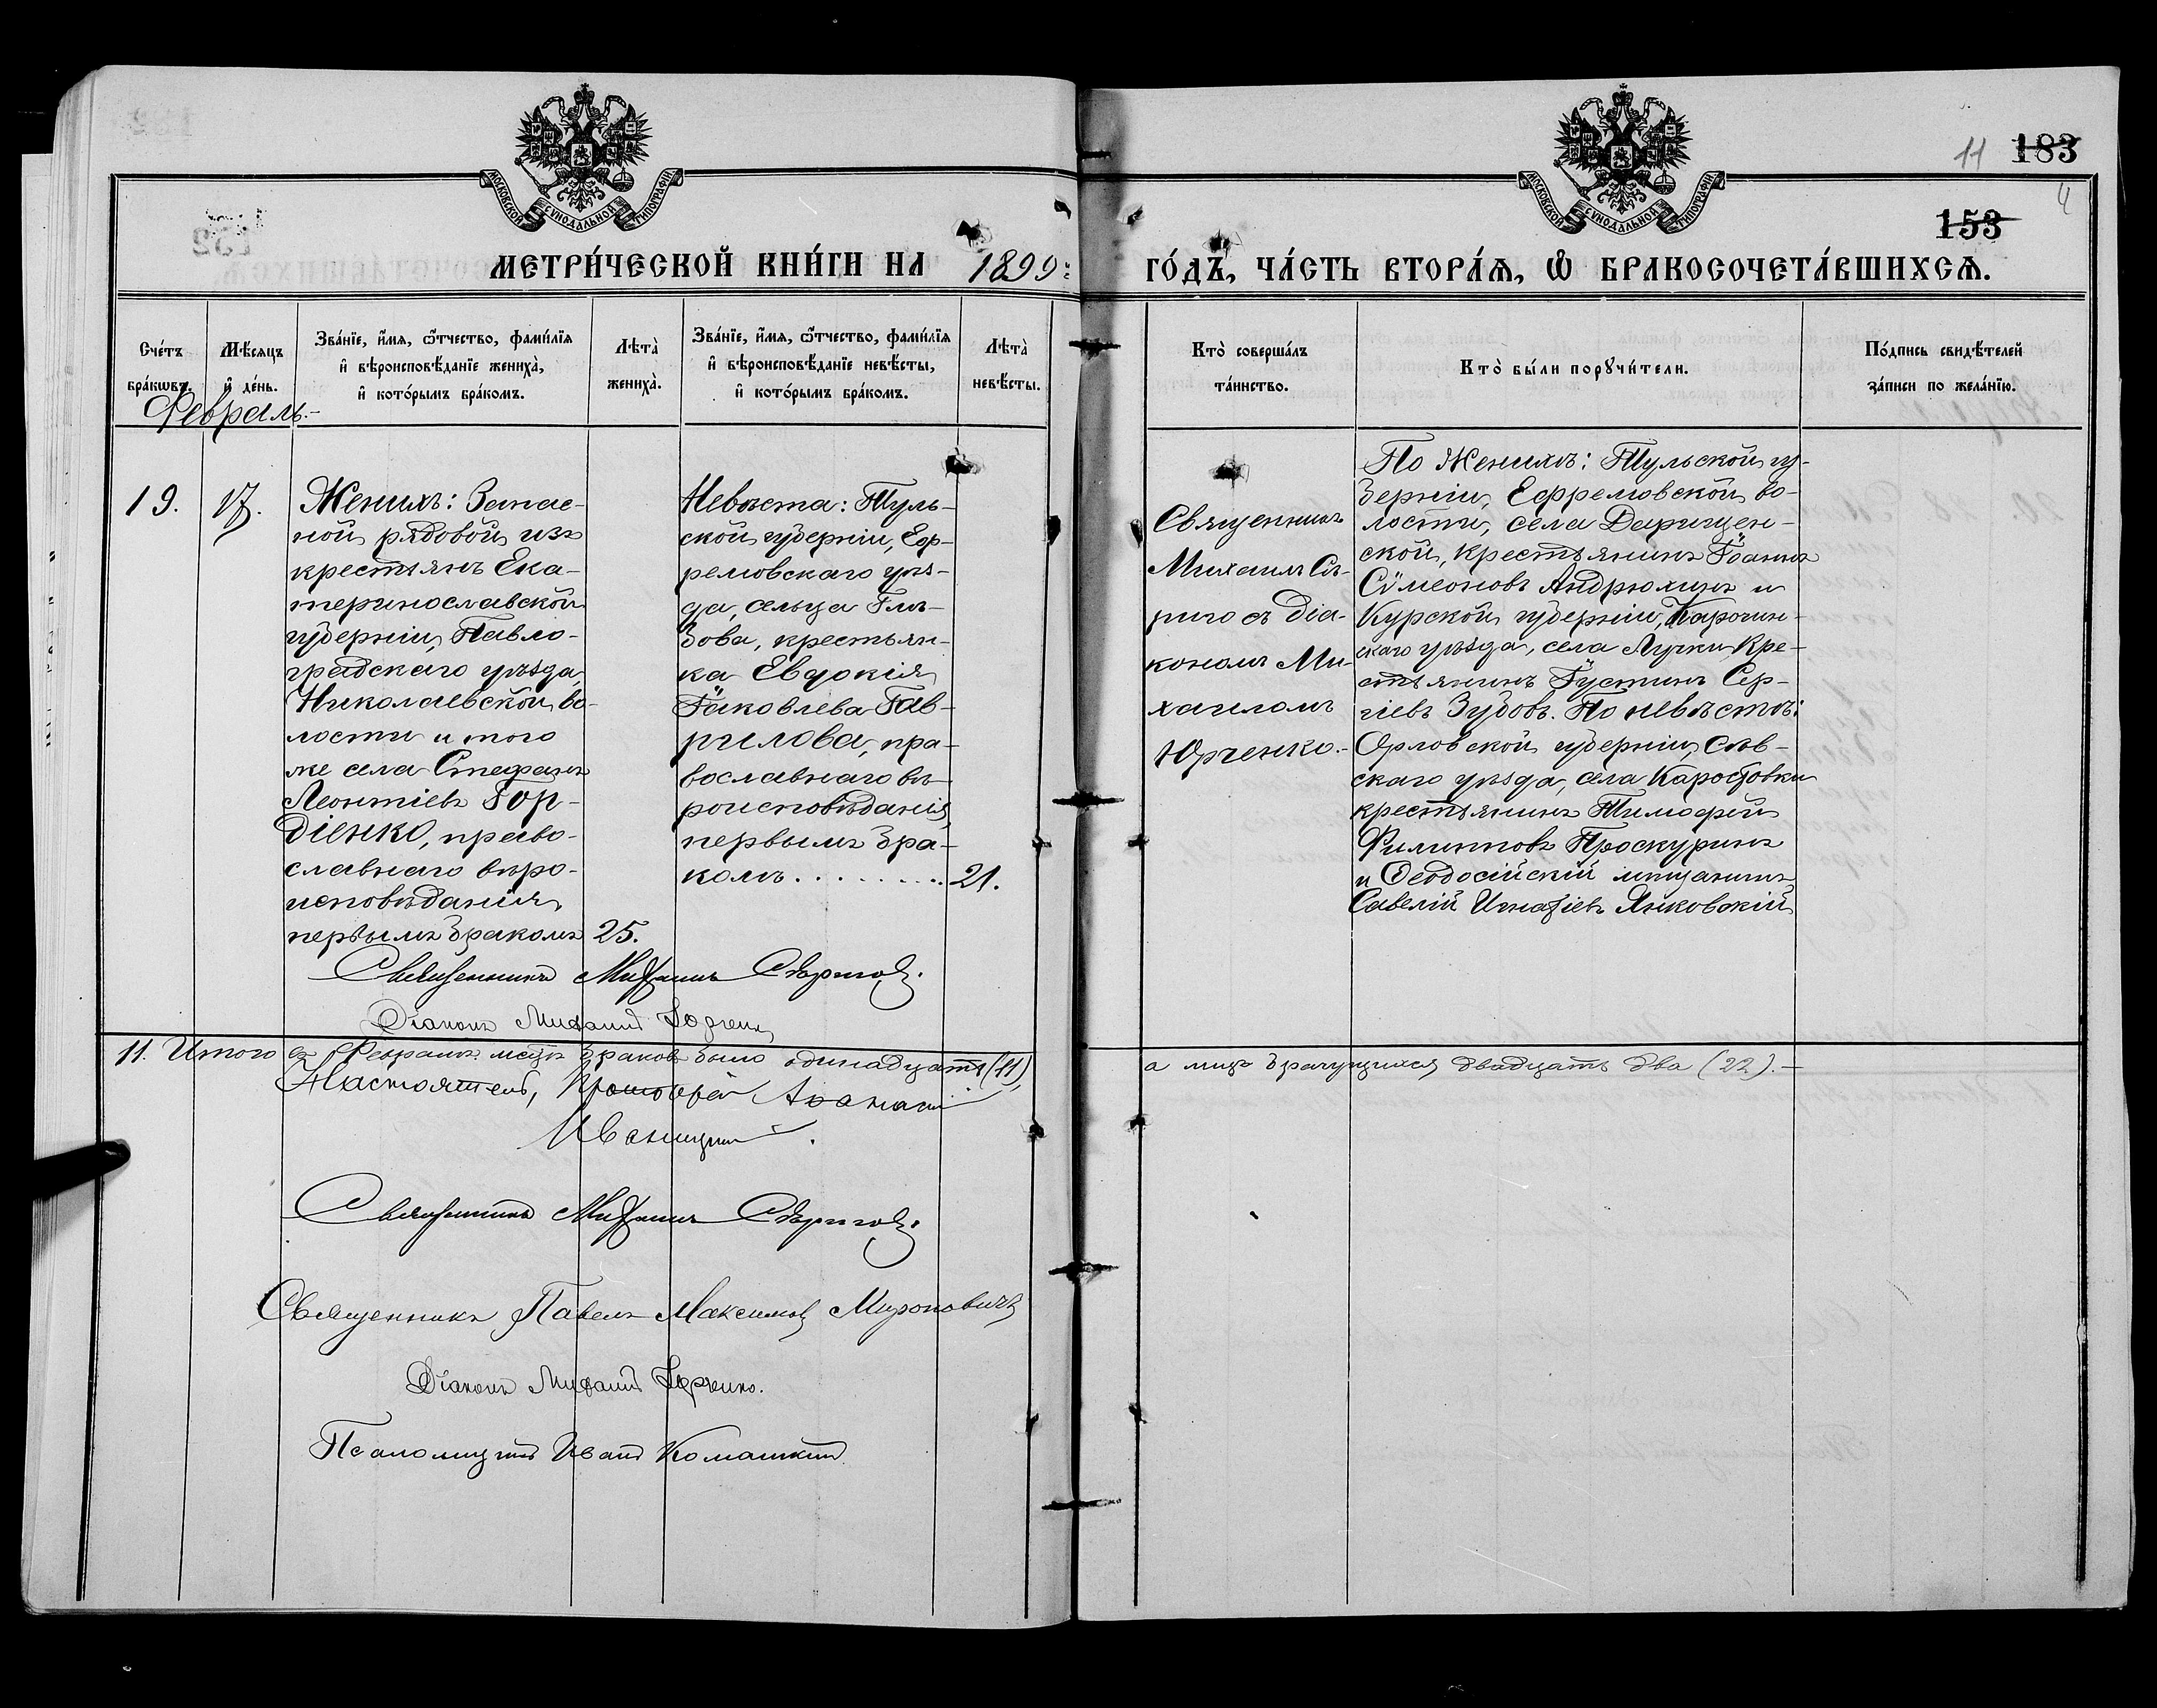 11 183
4
153
МОСКОВСКОЙ СѴНОДАЛЬНОЙ ТИПОГРАФІИ
МОСКОВСКОЙ СѴНОДАЛЬНОЙ ТИПОГРАФІИ
МЕТРИ́ЧЕСКОЙ КНИ́ГИ НА 1899:
ГО́ДЪ, ЧА́СТЬ ВТОРА́Ѧ, Ѽ БРАКОСОЧЕТА́ВШИХСѦ.
Сче́тъ
бра́кѡвъ.
Мѣ́сяцъ
и҆ де́нь.
Зва́нїе, и҆́мя, ѻ҆́тчество, фами́лїя
и҆ вѣроисповѣ́данїе жениха̀,
и҆ кото́рымъ бра́комъ.
Лѣта̀
жениха̀.
Зва́нїе, и҆́мя, ѻ҆́тчество, фами́лїя
и҆ вѣроисповѣ́данїе невѣ́сты,
и҆ кото́рымъ бра́комъ.
Лѣта̀
невѣ́сты.
Кто̀ соверша́лъ
та́инство.
Кто̀ бы́ли порꙋчи́тели.
По́дпись свидѣ́телей
за́писи по жела́нїю.
Февраль.-
19.
17.
Женихъ: Запас-
ной рядовой изъ
крестьянъ Ека-
теринославской
губерніи, Павло-
градскаго уѣзда,
Николаевской во-
лости и того
же села Стефанъ
Леонтіевъ Гор-
діенко, право-
славнаго вѣро-
исповѣданія,
первымъ бракомъ
25.
Невѣста: Туль-
ской губерніи, Еф-
ремовскаго уѣз-
да, сельца Глѣ-
бова, крестьян-
ка Евдокія
Іаковлева Гав-
рилова, пра-
вославнаго вѣ-
роисповѣданія,
первымъ бра-
комъ . . . . . . . . .
21.
Священникъ
Михаилъ Сѣ-
риго съ діа-
кономъ Ми-
хаиломъ
Юрченко.-
По Женихѣ: Тульской гу-
берніи, Ефремовской во-
лости, села Дарищен-
ской, крестьянинъ Іоаннъ
Сѵмеоновъ Андрюхинъ и
Курской губерніи, Карочин-
скаго уѣзда, села Лучки, Кре-
стьянинъ Іустинъ Сер-
гіевъ Зубовъ. По невѣстѣ:
Орловской губерніи, Сѣв-
скаго уѣзда, села Каростовки
крестьянинъ Тимофей
Филипповъ Проскуринъ
и Ѳеодосійскій мѣщанинъ
Савелій Игнатіевъ Янковскій
Священникъ Михаилъ Сѣриговъ.
Діаконъ Михаилъ Юрченко
11. Итого въ Февралѣ мѣсяцѣ браковъ было одинадцать (11),
а лицъ брачущихся двадцать два (22).-
Настоятель, Протоіерей Аѳанасій
Иваницкій.
Священникъ Михаилъ Сѣриговъ.
Священникъ Павелъ Максимовъ Мироновичъ
Діаконъ Михаилъ Юрченко.
Псаломщикъ Иванъ Комашкинъ